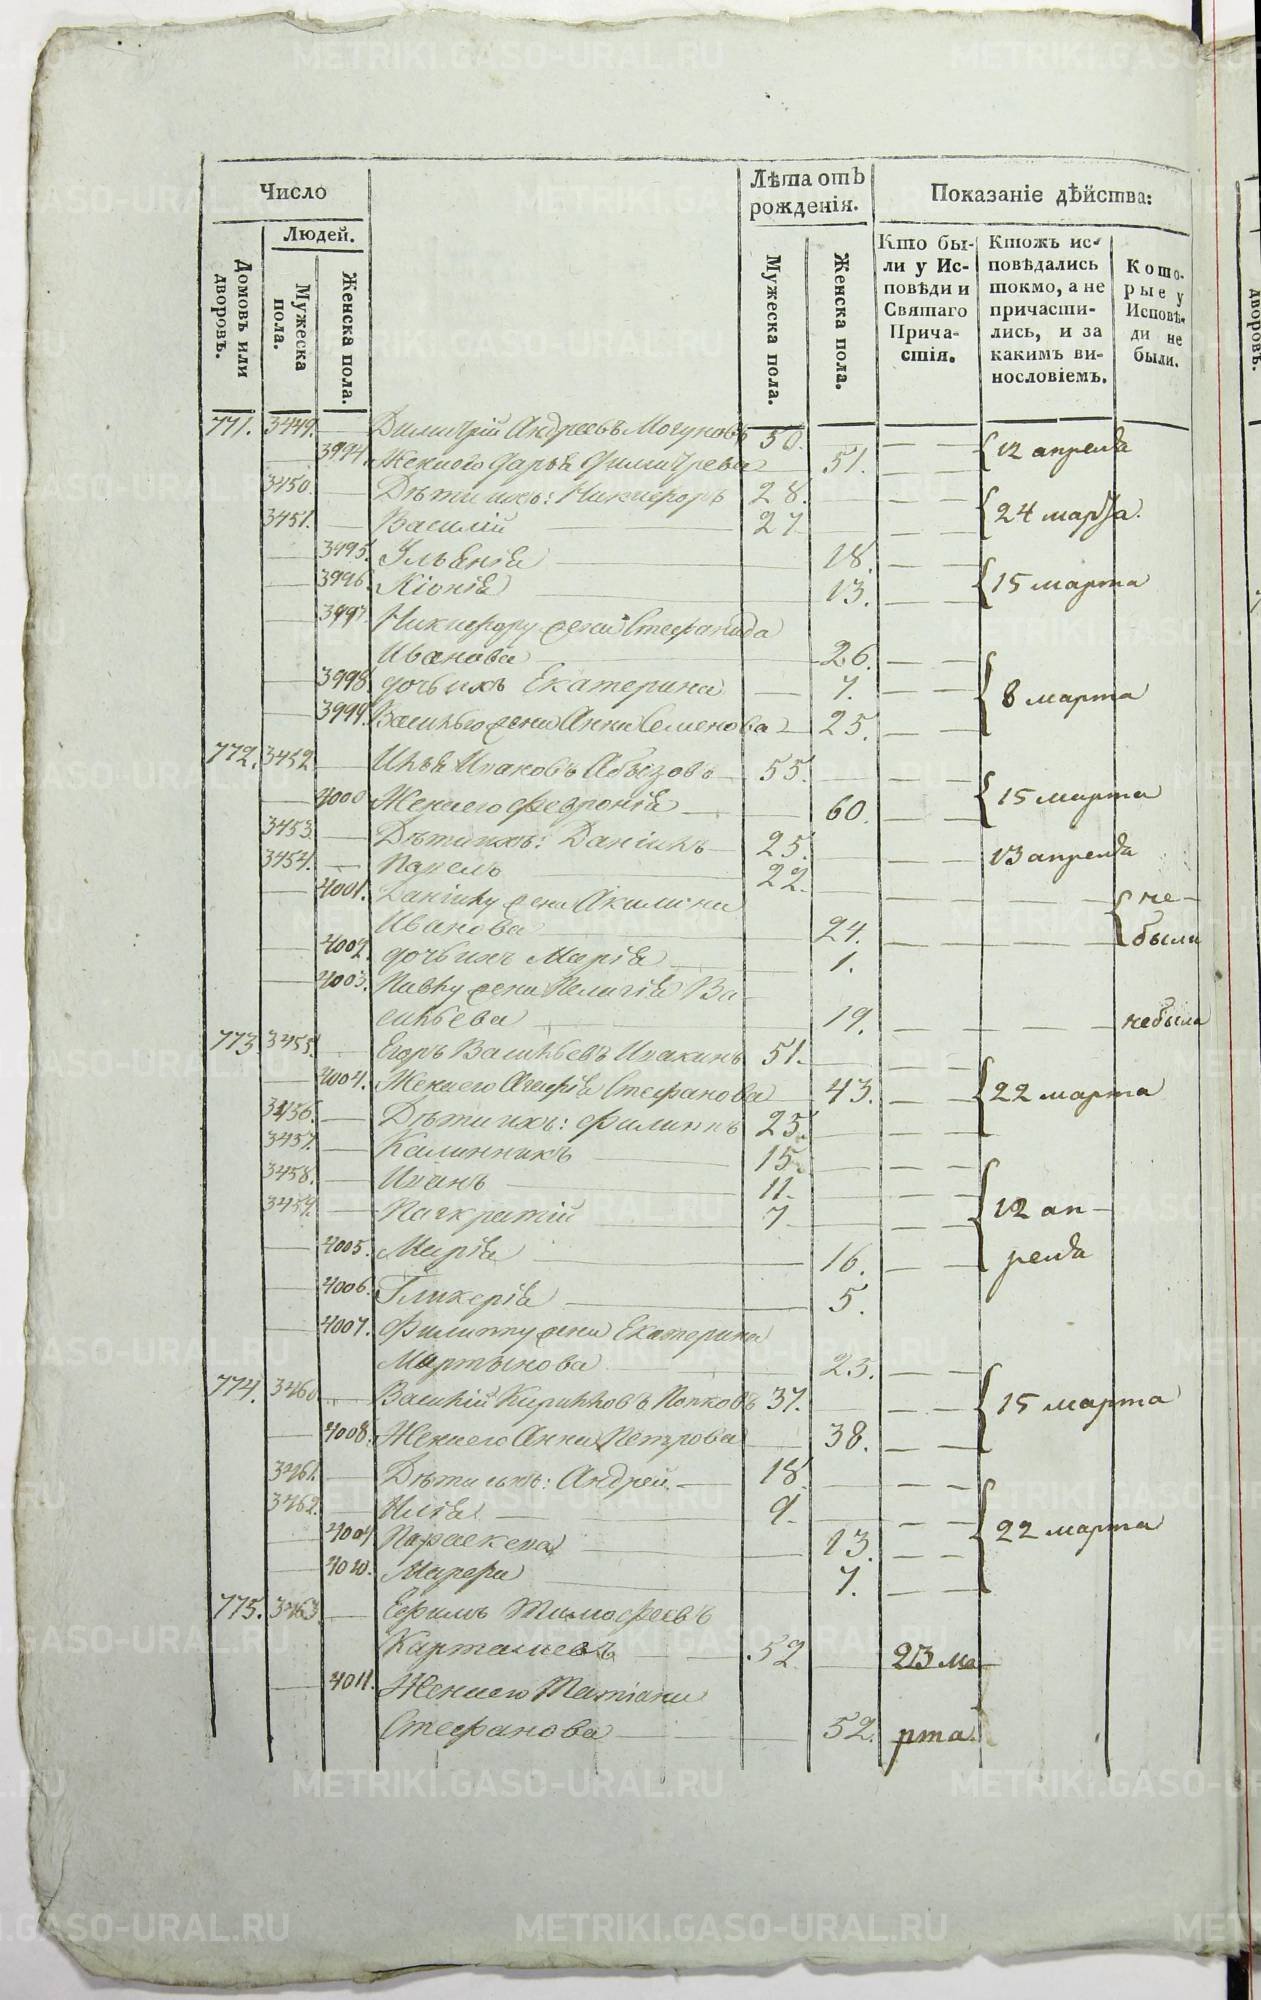 Число
Лѣта отъ рожденія.
Показаніе дѣйства:
Людей.
Домовъ или дворовъ.
Мужеска пола.
Женска пола.
Мужеска пола.
Женска пола.
Кто бы-
ли у Ис-
повѣди и
Святаго
Прича-
стія.
Ктожъ ис-
повѣдались
токмо, а не
причасти-
лись, и за
какимъ ви-
нословіемъ.
Кото-
рые у
Исповѣ-
ди не
были.
771. 3449. Димитрій Андреевъ Могуновъ 50.
3994. Жена его Дарья 51. 12 апреля
3450. Дѣти ихъ: Никифоръ 28.
3451. Василій 27. 24 марта.
3995. Ульянія 18.
3996. Хіонія 13. 15 марта
3997. Никифору жена Стефанида
Иванова 26.
3998. дочь ихъ Екатерина 7. 8 марта
3999. жена Анна Семенова 25.
772. 3452. Илья Исаковъ Абызовъ 55.
4000 Жена его Феврония 60. 15 марта
3453. Дѣти ихъ: Даніилъ 25.
3454. Павелъ 22. 13 апреля
4001. Даніилу жена Акилина не-
Иванова 24. были
4002. дочь ихъ Марія 1.
4003. Павлу жена Пелагія Ва-
сильева 19. небыла
773. 3455. Егоръ Васильевъ Исакинъ 51.
4004. Жена его Агафія Стефанова 43. 22 марта
3456. Дѣти ихъ: Филиппъ 25.
3457. Калинникъ 15.
3458. Иванъ 11.
3459. Панкратій 7. 12 ап-
4005. Марія 16. реля
4006. Гликерія 5.
4007. Филиппу жена Екатерина
Мартынова 23.
774. 3460. Василій Кириловъ Попковъ 37. 15 марта
4008. Жена его Анна Петрова 38.
3461. Дѣти ихъ: Андрей 18.
3462. Илія 9.
4009 Параскева 13. 22 марта
4010. 7.
775. 3463. Ефимъ Тимофеевъ
52 23 ма-
4011. Жена его Татіана
Стефанова 52. рта.
METRIKI.GASO-URAL.RU